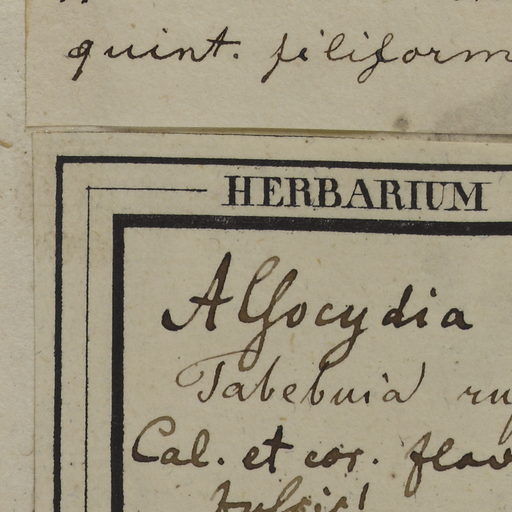 quint. filiform
HERBARIUM
Alsocydia
Tabebuia ru
Cal. et cor. flav